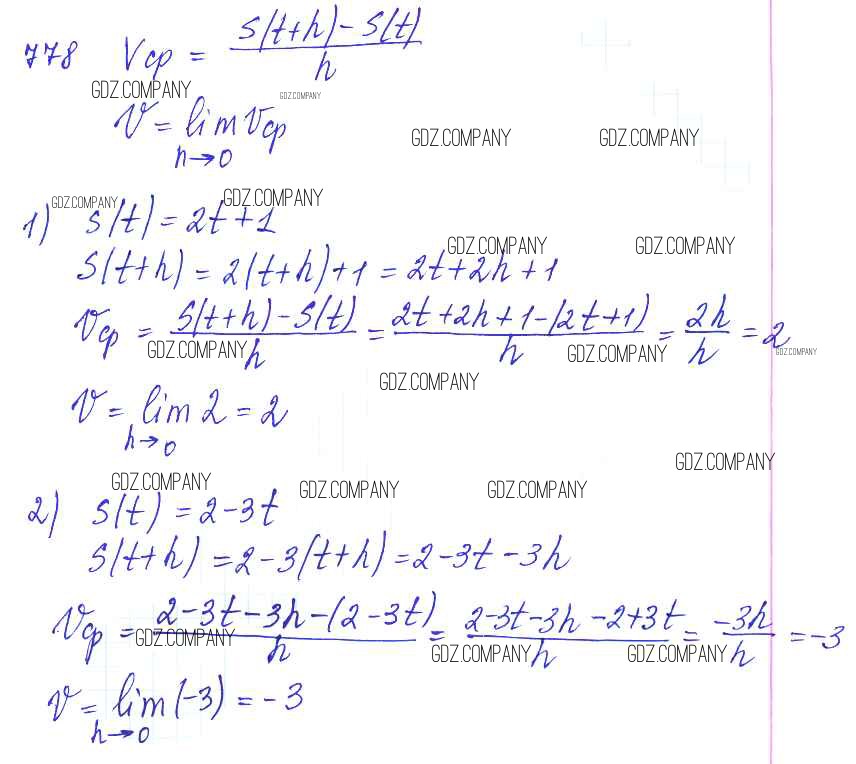 778 Vср = S(t+h) - S(t) / h
GDZ.COMPANY GDZ.COMPANY
V = lim Vср
h→0
GDZ.COMPANY GDZ.COMPANY
GDZ.COMPANY GDZ.COMPANY
1) S(t) = 2t + 1
GDZ.COMPANY GDZ.COMPANY
S(t+h) = 2(t+h)+1 = 2t+2h+1
Vср = S(t+h) - S(t) / h = 2t+2h+1-(2t+1) / h = 2h / h = 2
GDZ.COMPANY GDZ.COMPANY GDZ.COMPANY
GDZ.COMPANY
V = lim 2 = 2
h→0
GDZ.COMPANY
GDZ.COMPANY GDZ.COMPANY GDZ.COMPANY
2) S(t) = 2-3t
S(t+h) = 2-3(t+h) = 2-3t-3h
Vср = 2-3t-3h-(2-3t) / h = 2-3t-3h-2+3t / h = -3h / h = -3
GDZ.COMPANY GDZ.COMPANY GDZ.COMPANY
V = lim (-3) = -3
h→0